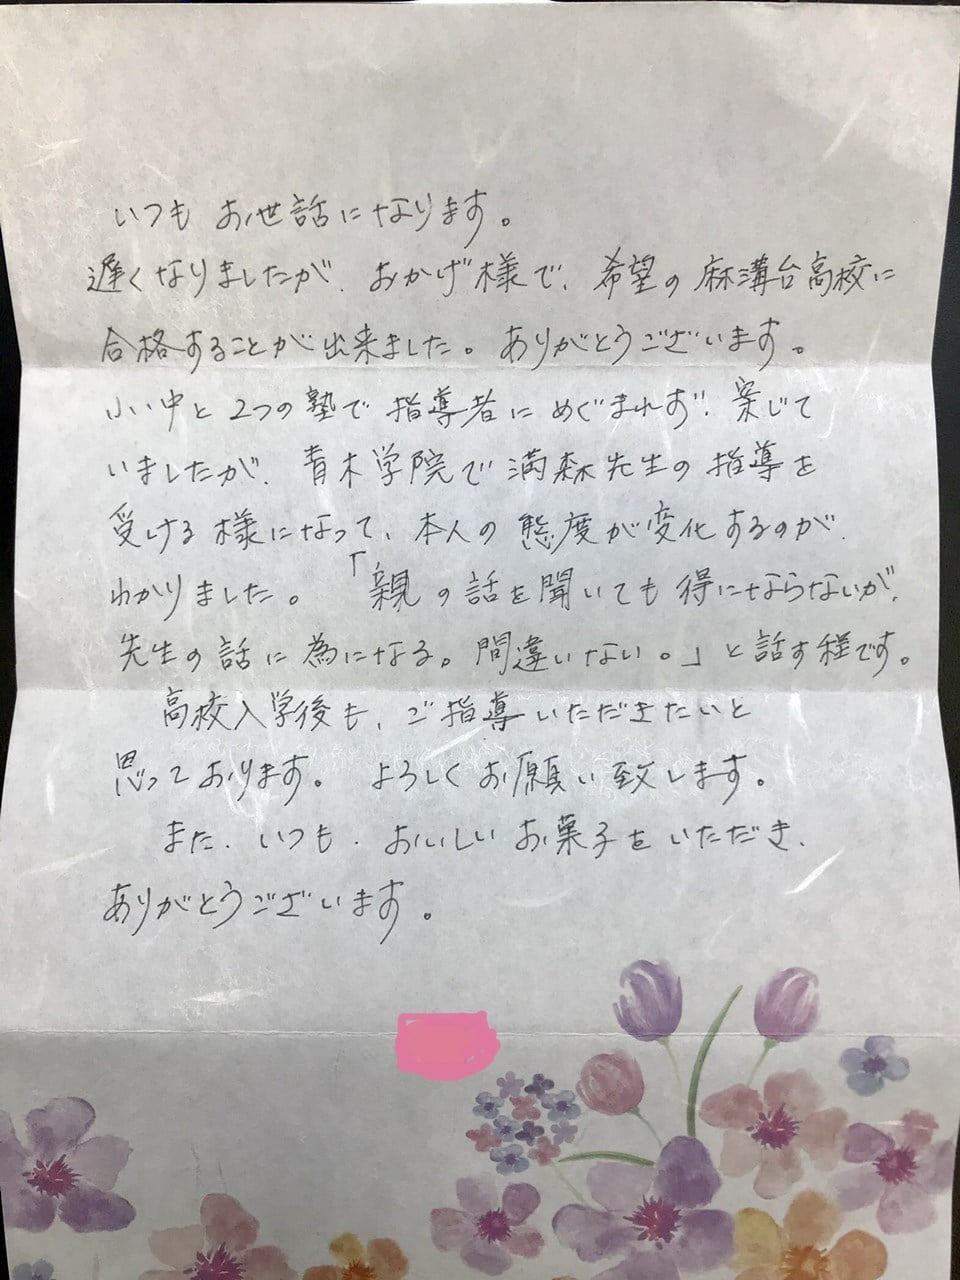 いつも お世話になります。
遅くなりましたが、おかげ様で、希望の麻溝台高校に
合格することが出来ました。ありがとうございます。
小・中と2つの塾で指導者にめぐまれず、案じて
いましたが、青木学院で満森先生の指導を
受ける様になって、本人の態度が変化するのが、
わかりました。「親の話を聞いても得にならないが、
先生の話は為になる。間違いない。」と話す程です。
高校入学後も、ご指導いただきたいと
思っております。よろしくお願い致します。
また、いつも、おいしいお菓子をいただき、
ありがとうございます。